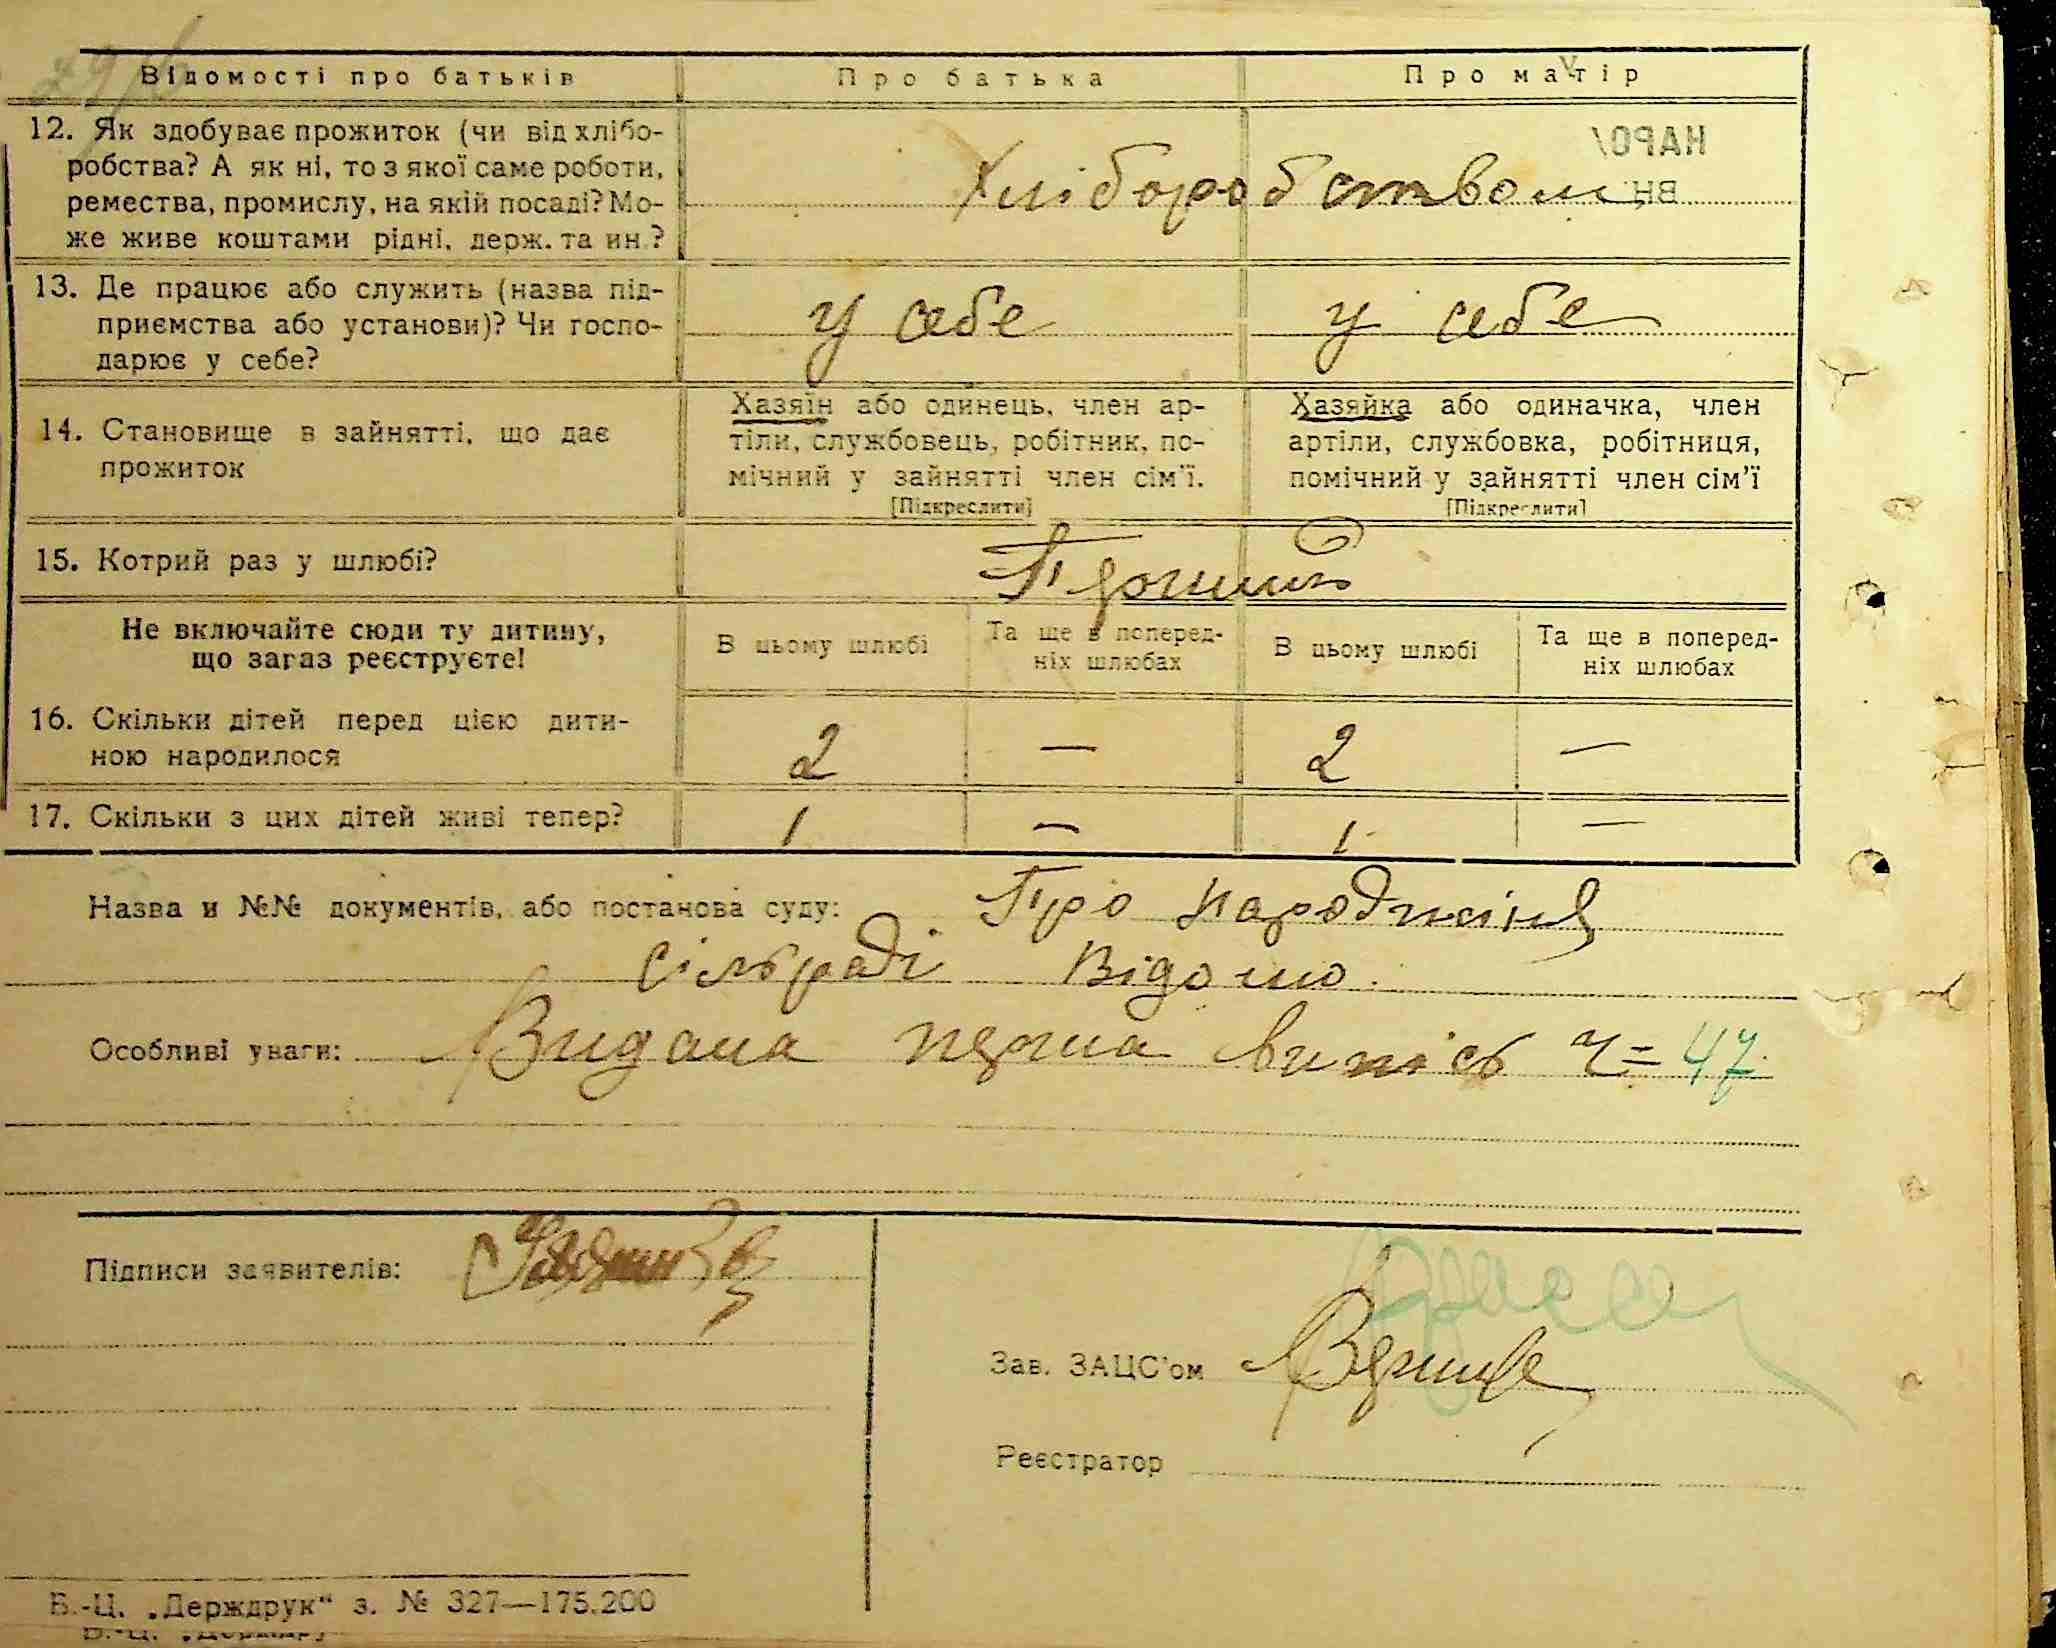 Відомості про батьків Про батька Про матір
12. Як здобуває прожиток (чи від хлібо-
робства? А як ні, то з якої саме роботи,
ремества, промислу, на якій посаді? Мо-
же живе коштами рідні, держ. та ин.?
Хліборобством
13. Де працює або служить (назва під-
приємства або установи)? Чи госпо-
дарює у себе?
у себе у себе
14. Становище в зайнятті, що дає
прожиток
Хазяїн або одинець, член ар-
тіли, службовець, робітник, по-
мічний у зайнятті член сім'ї.
[Підкреслити]
Хазяйка або одиначка, член
артіли, службовка, робітниця,
помічний у зайнятті член сім'ї
[Підкреслити]
15. Котрий раз у шлюбі? Перший
Не включайте сюди ту дитину,
що зараз реєструєте!
В цьому шлюбі
Та ще в поперед-
ніх шлюбах
В цьому шлюбі
Та ще в поперед-
ніх шлюбах
16. Скільки дітей перед цією дити-
ною народилося
2 — 2 —
17. Скільки з цих дітей живі тепер? 1 — 1 —
Назва и №№ документів, або постанова суду: Про народжіня
сільраді відомо.
Особливі уваги: Видана перша випісь ч = 47.
Підписи заявителів:
Зав. ЗАЦС'ом
Реєстратор
Б.-Ц. „Держдрук“ з. № 327—175.200